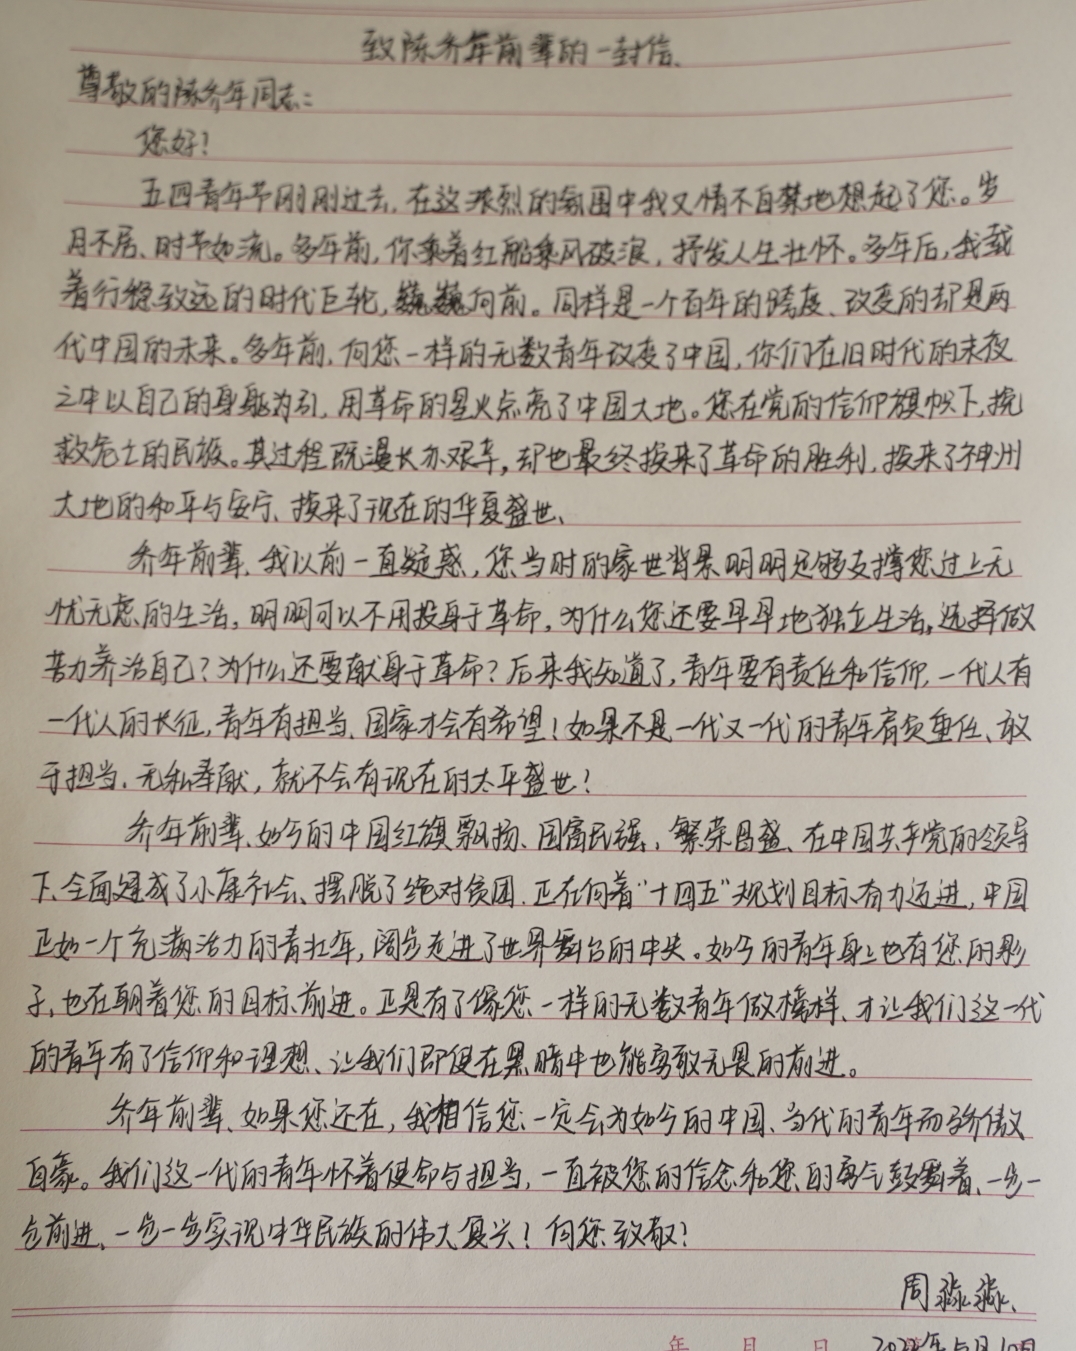 致陈乔年前辈的一封信、
尊敬的陈乔年同志：
您好！
五四青年节刚刚过去，在这浓烈的氛围中我又情不自禁地想起了您。岁
月不居、时节如流。多年前，你乘着红船乘风破浪，抒发人生壮怀。多年后，我载
着行稳致远的时代巨轮，巍巍向前。同样是一个百年的跨度、改变的却是两
代中国的未来。多年前，向您一样的无数青年改变了中国，你们在旧时代的末夜
之中以自己的身躯为引，用革命的星火点亮了中国大地。您在党的信仰旗帜下，挽
救危亡的民族。其过程既漫长亦艰辛，却也最终换来了革命的胜利，换来了神州
大地的和平与安宁、换来了现在的华夏盛世、
乔年前辈、我以前一直疑惑，您当时的家世背景明明足够支撑您过上无
忧无虑的生活，明明可以不用投身于革命，为什么您还要早早地独立生活，选择做
苦力养活自己？为什么还要献身于革命？后来我知道了，青年要有责任和信仰，一代人有
一代人的长征，青年有担当、国家才会有希望！如果不是一代又一代的青年肩负重任、敢
于担当、无私奉献，就不会有现在的太平盛世！
乔年前辈、如今的中国红旗飘扬、国富民强，繁荣昌盛、在中国共产党的领导
下、全面建成了小康社会、摆脱了绝对贫困、正在向着“十四五”规划目标有力迈进，中国
正如一个充满活力的青壮年，阔步走进了世界舞台的中央。如今的青年身上也有您的影
子，也在朝着您的目标前进。正是有了像您一样的无数青年做榜样、才让我们这一代
的青年有了信仰和理想、让我们即使在黑暗中也能勇敢无畏的前进。
乔年前辈、如果您还在，我相信您一定会为如今的中国、当代的青年而骄傲
自豪。我们这一代的青年怀着使命与担当，一直被您的信念和您的勇气鼓舞着、一步一
步前进、一步一步实现中华民族的伟大复兴！向您致敬！
周淼淼、
年 月 日 2022年5月10日